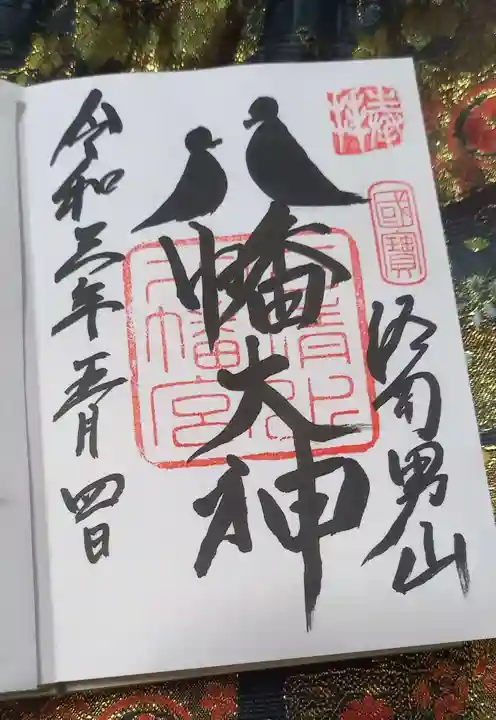 國寶
洛南男山
八幡大神
石清水八幡宮
令和三年五月四日